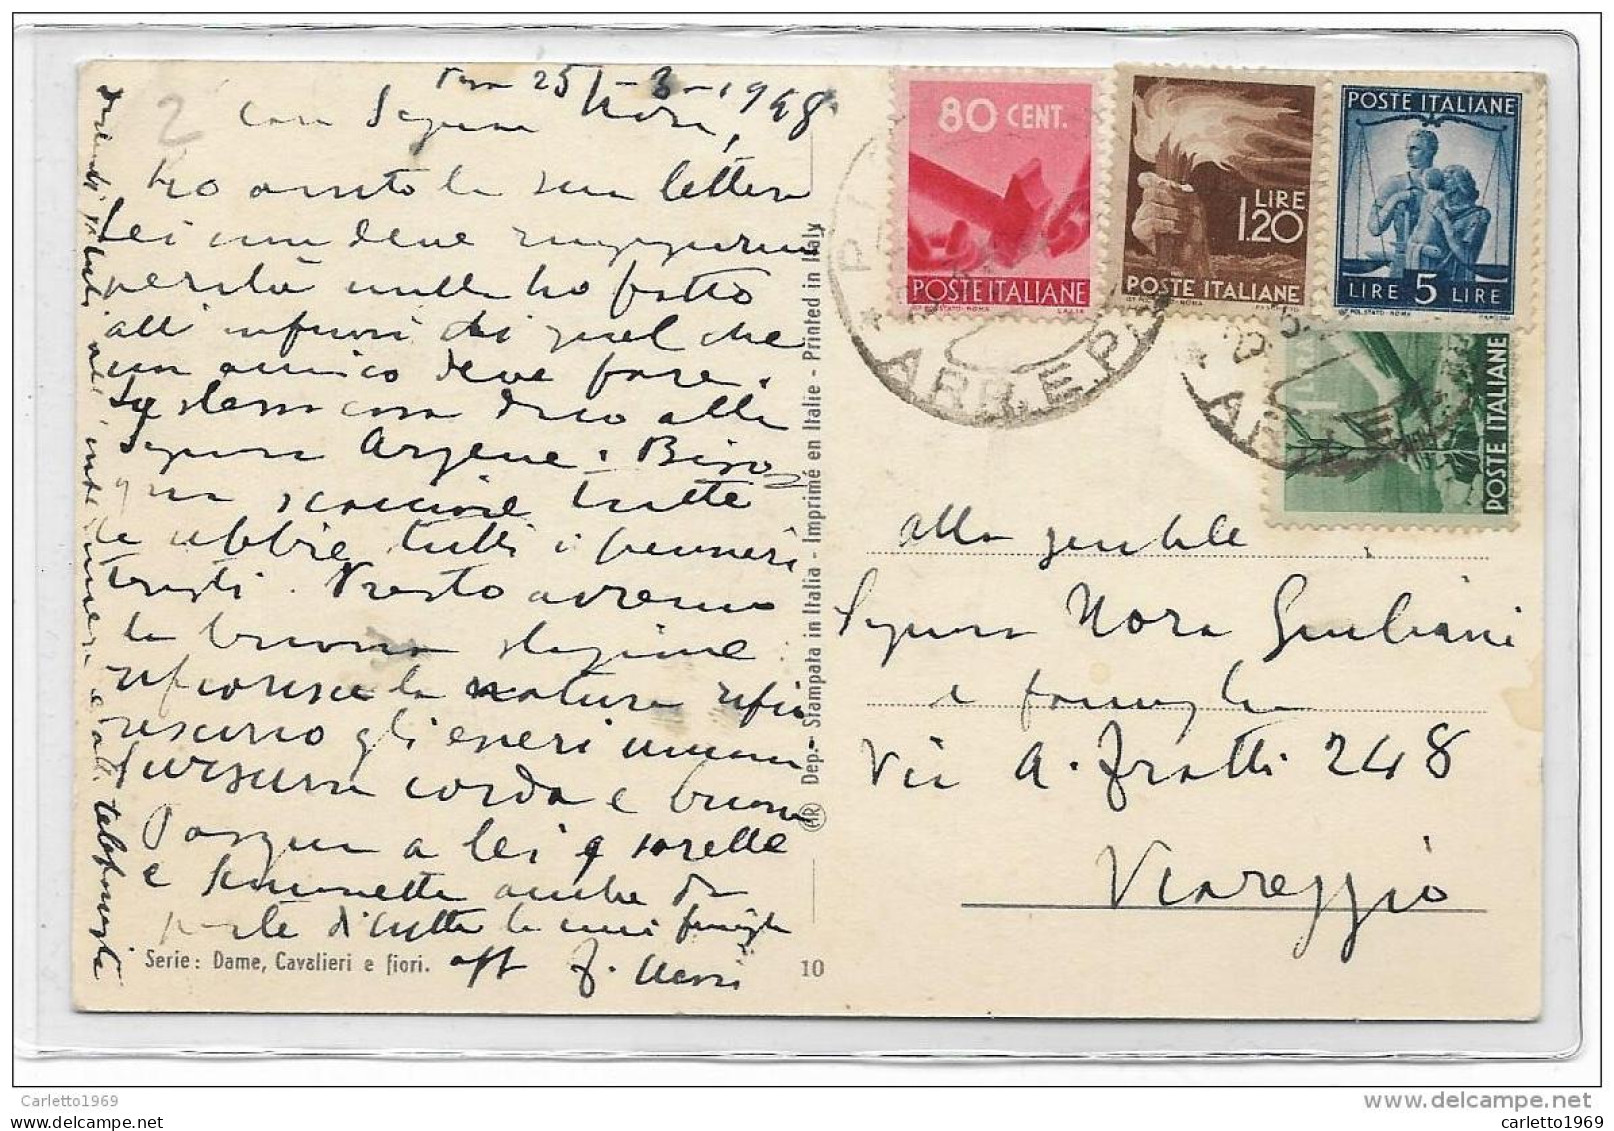 25-3-1948
Cara Signora Nora,
ho avuto la sua lettera
Lei non deve
perchè nulla ho fatto
all' infuori di quel che
un amico deve fare.
La stessa cosa dico alla
Signora Argene. Biso
gna scacciare tutte
le ubbie, tutti i pensieri
tristi. Presto avremo
la buona stagione
rifiorisce la natura rifio
riscono gli esseri umani
Sursum corda e buona
Pasqua a lei e sorelle
e Simonetta anche da
parte di tutta la mia famiglia
aff
Serie: Dame, Cavalieri e fiori.
10
Dep. - Stampata in Italia - Imprimé en Italie - Printed in Italy
80 CENT.
POSTE ITALIANE
LIRE
1.20
POSTE ITALIANE
POSTE ITALIANE
LIRE 5 LIRE
POSTE ITALIANE
ARR. E P.
alla gentile
Signora Nora Giuliani
e famiglia
Via A. Fratti 248
Viareggio
Carletto1969
www.delcampe.net
carletto1969